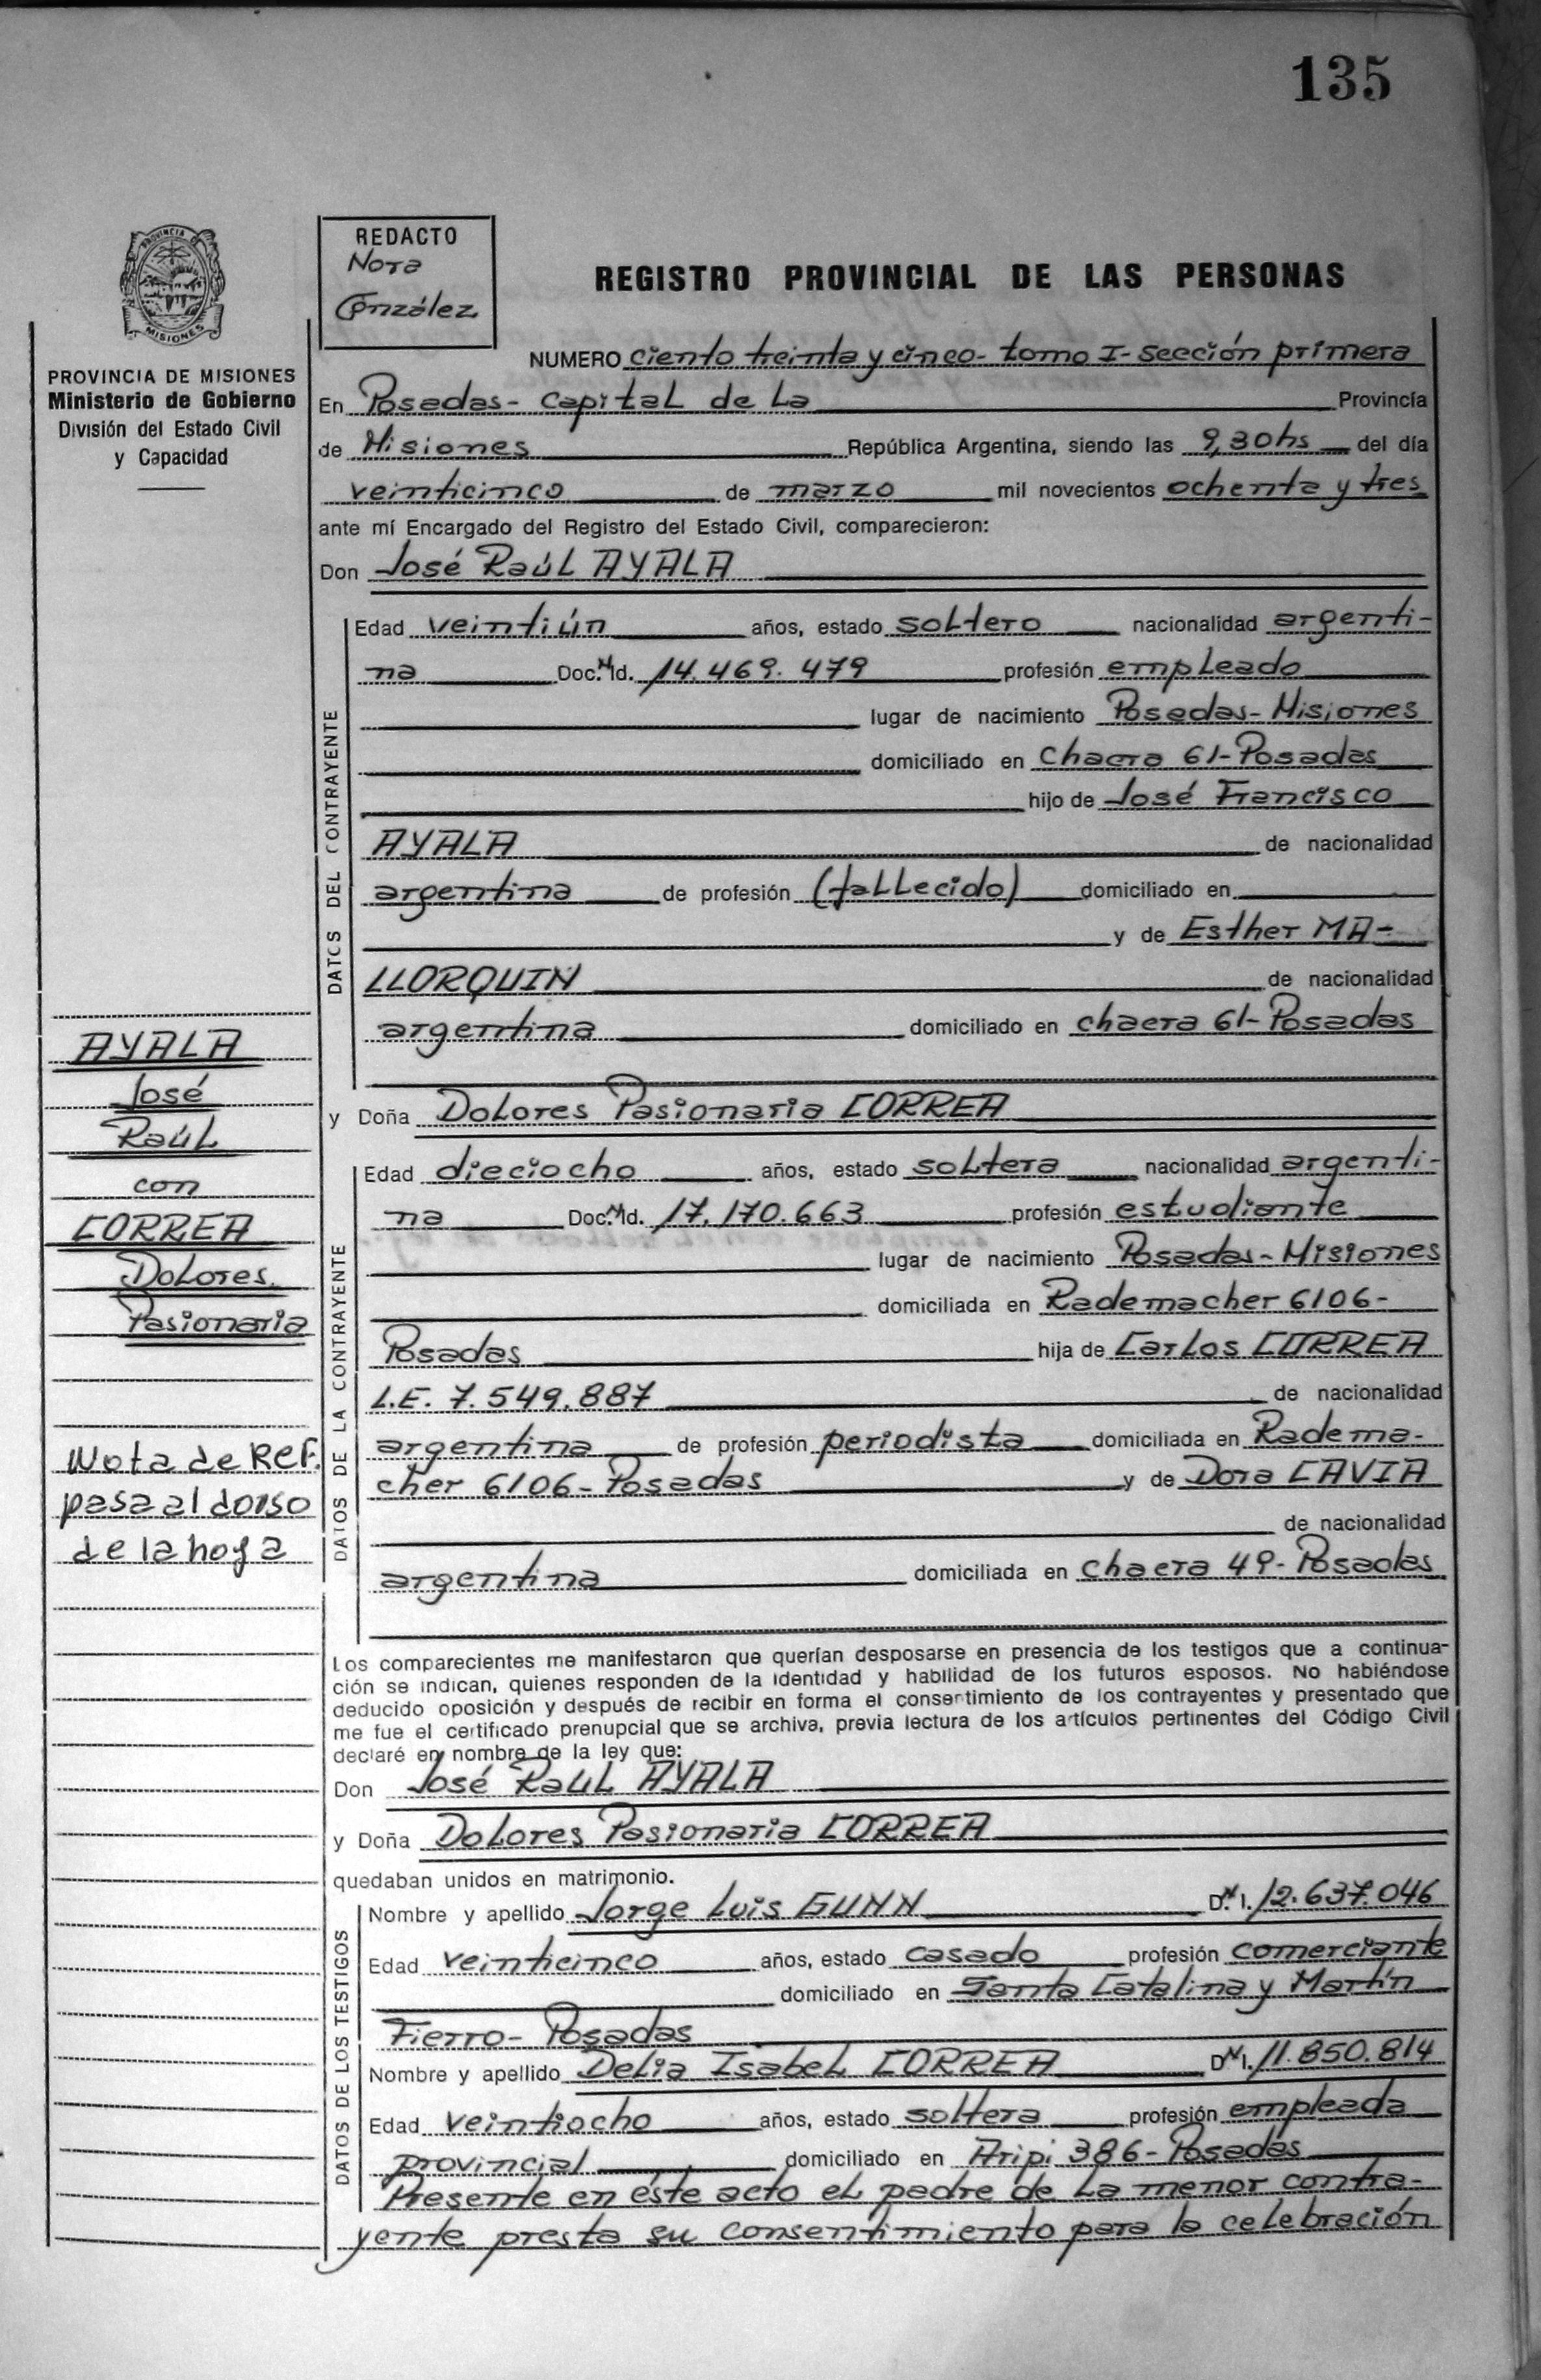 135
PROVINCIA DE
MISIONES
PROVINCIA DE MISIONES
Ministerio de Gobierno
División del Estado Civil
y Capacidad
REDACTO
Nora
González
REGISTRO PROVINCIAL DE LAS PERSONAS
NUMERO ciento treinta y cinco- tomo I- sección primera
En Posadas- Capital de La Provincia
de Misiones República Argentina, siendo las 9,30hs del día
veinticinco de marzo mil novecientos ochenta y tres
ante mí Encargado del Registro del Estado Civil, comparecieron:
Don José Raúl AYALA
DATOS DEL CONTRAYENTE
Edad veintiún años, estado soltero nacionalidad argenti-
na Doc.N Id. 14.469.479 profesión empleado
lugar de nacimiento Posadas- Misiones
domiciliado en Chacra 61- Posadas
hijo de José Francisco
AYALA de nacionalidad
argentina de profesión (fallecido) domiciliado en
y de Esther MA-
LLORQUIN de nacionalidad
argentina domiciliado en chacra 61- Posadas
AYALA
José
Raúl
con
CORREA
Dolores
Pasionaria
Nota de Ref.
pasa al dorso
de la hoja
y Doña Dolores Pasionaria CORREA
DATOS DE LA CONTRAYENTE
Edad dieciocho años, estado soltera nacionalidad argenti-
na Doc.N Id. 17.170.663 profesión estudiante
lugar de nacimiento Posadas- Misiones
domiciliada en Rademacher 6106-
Posadas hija de Carlos CORREA
L.E. 7.549.887 de nacionalidad
argentina de profesión periodista domiciliada en Radema-
cher 6106- Posadas y de Dora CAVIA
de nacionalidad
argentina domiciliada en chacra 49- Posadas
Los comparecientes me manifestaron que querían desposarse en presencia de los testigos que a continua-
ción se indican, quienes responden de la identidad y habilidad de los futuros esposos. No habiéndose
deducido oposición y después de recibir en forma el consentimiento de los contrayentes y presentado que
me fue el certificado prenupcial que se archiva, previa lectura de los artículos pertinentes del Código Civil
declaré en nombre de la ley que:
Don José Raúl AYALA
y Doña Dolores Pasionaria CORREA
quedaban unidos en matrimonio.
DATOS DE LOS TESTIGOS
Nombre y apellido Jorge Luis GUNN D.N.I. 12.637.046
Edad veinticinco años, estado casado profesión comerciante
domiciliado en Santa Catalina y Martín
Fierro- Posadas
Nombre y apellido Delia Isabel CORREA D.N.I. 11.850.814
Edad veintiocho años, estado soltera profesión empleada
provincial domiciliado en Aripi 386- Posadas
Presente en éste acto el padre de la menor contra-
yente presta su consentimiento para la celebración